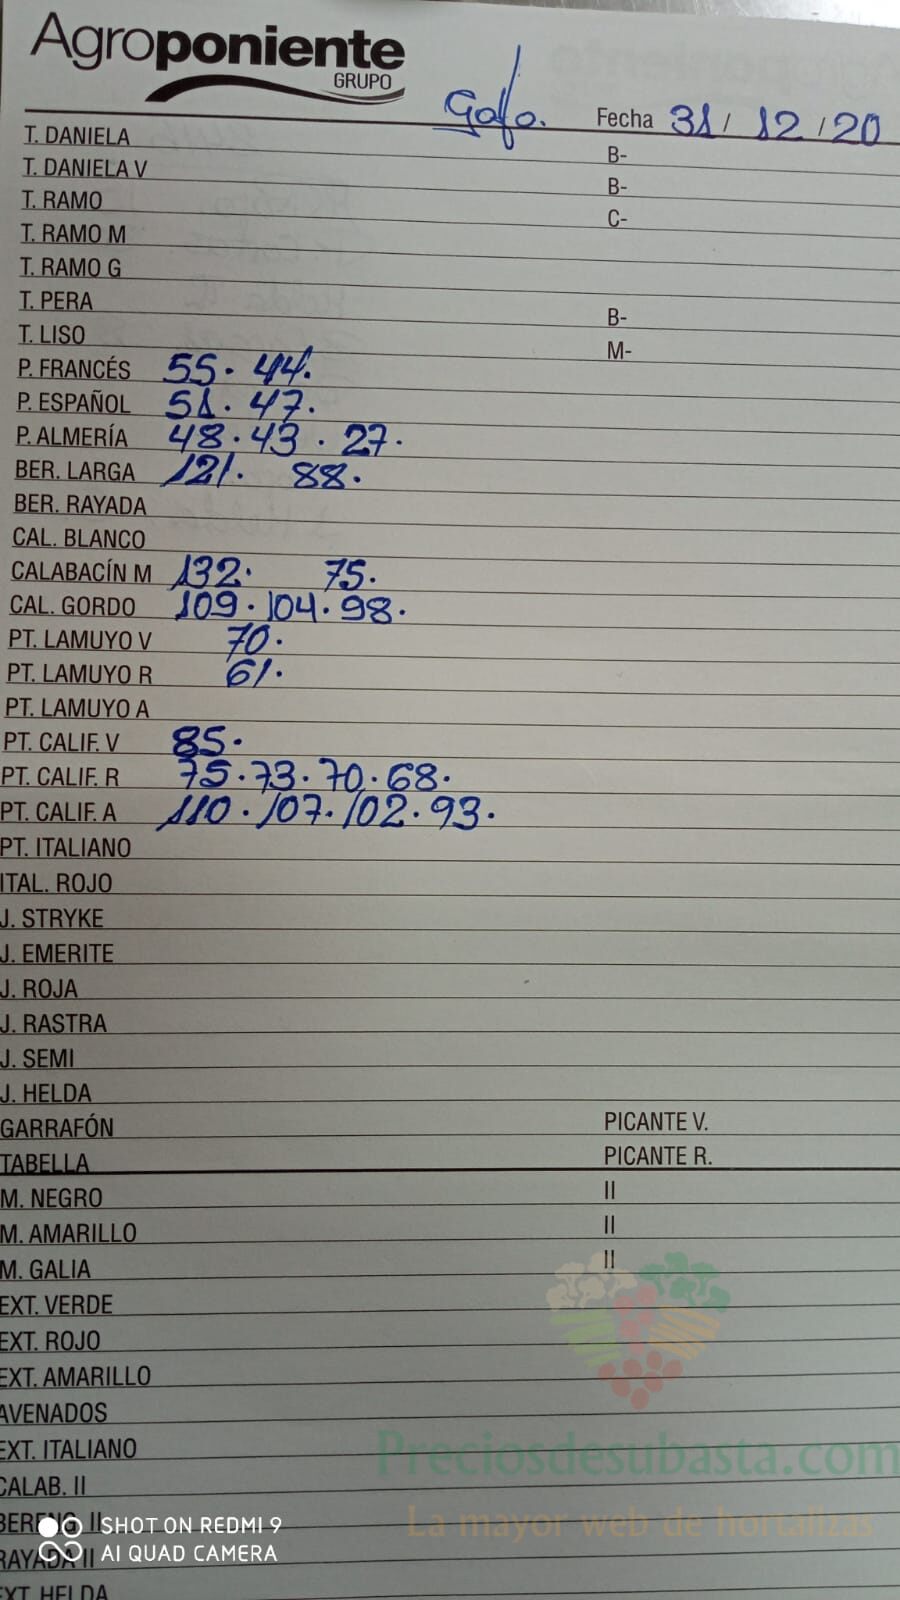 Agroponiente
GRUPO
Golfo. Fecha 31 / 12 / 20
T. DANIELA B-
T. DANIELA V B-
T. RAMO C-
T. RAMO M
T. RAMO G
T. PERA B-
T. LISO M-
P. FRANCÉS 55. 44.
P. ESPAÑOL 51. 47.
P. ALMERÍA 48. 43. 27.
BER. LARGA 121. 88.
BER. RAYADA
CAL. BLANCO
CALABACÍN M 132. 75.
CAL. GORDO 109. 104. 98.
PT. LAMUYO V 70.
PT. LAMUYO R 61.
PT. LAMUYO A
PT. CALIF. V 85.
PT. CALIF. R 75. 73. 70. 68.
PT. CALIF. A 110. 107. 102. 93.
PT. ITALIANO
ITAL. ROJO
J. STRYKE
J. EMERITE
J. ROJA
J. RASTRA
J. SEMI
J. HELDA
GARRAFÓN PICANTE V.
TABELLA PICANTE R.
M. NEGRO II
M. AMARILLO II
M. GALIA II
EXT. VERDE
EXT. ROJO
EXT. AMARILLO
AVENADOS
EXT. ITALIANO
Preciosdesubasta.com
CALAB. II
La mayor web de hortalizas
BERENG. II
SHOT ON REDMI 9
AI QUAD CAMERA
RAYADA II
EXT. HELDA